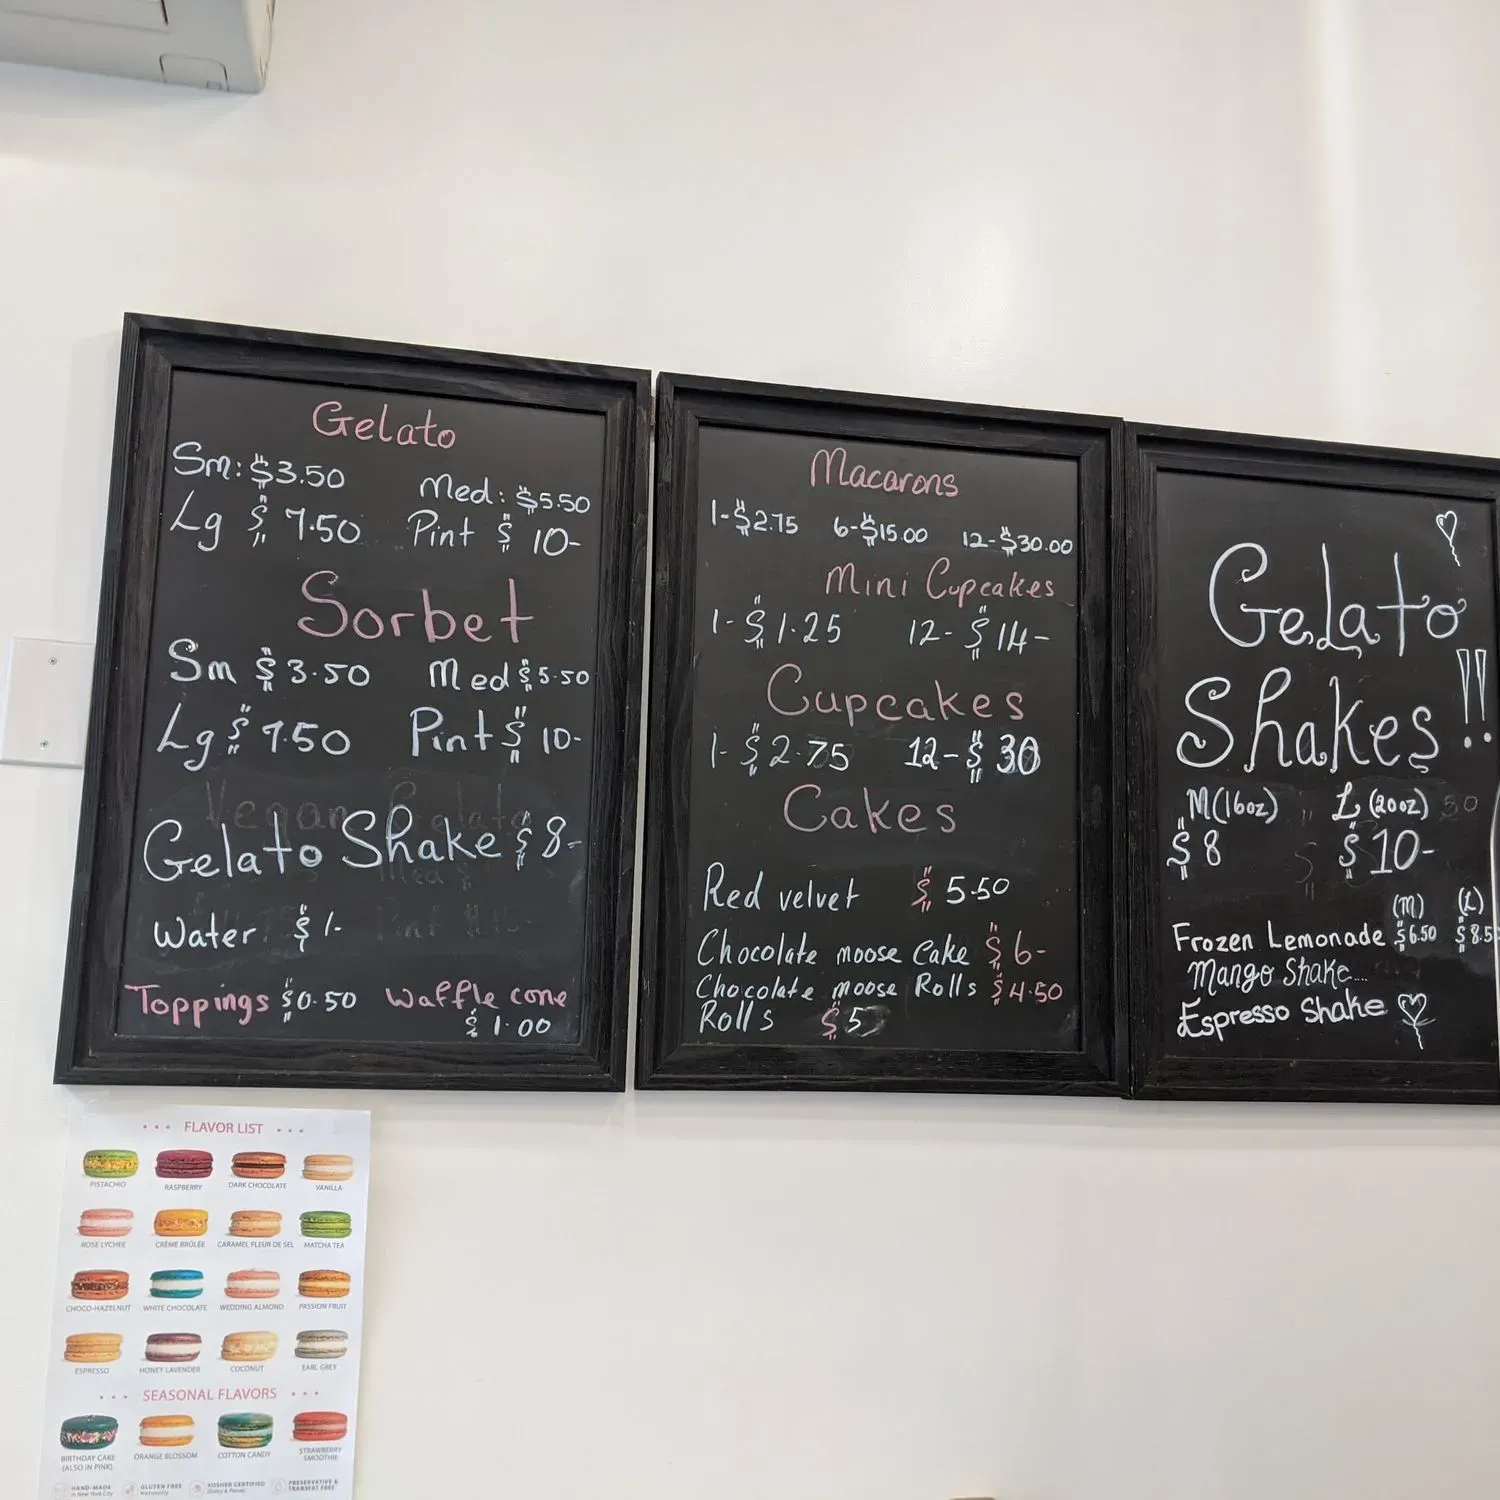 Gelato
Sm: $3.50 Med: $5.50
Lg $ 7.50 Pint $ 10-
Sorbet
Sm $ 3.50 Med $ 5.50
Lg $ 7.50 Pint $ 10-
Vegan Gelato
Gelato Shake $ 8-
Water $ 1-
Toppings $0.50 Waffle cone
$ 1.00
Macarons
1-$2.75 6-$15.00 12-$30.00
Mini Cupcakes
1- $ 1.25 12- $ 14-
Cupcakes
1- $ 2.75 12- $ 30
Cakes
Red velvet $ 5.50
Chocolate moose Cake $ 6-
Chocolate moose Rolls $ 4.50
Rolls $ 5
Gelato
Shakes!!
M(16oz) L (20oz)
$ 8 $ 10-
(M) (L)
Frozen Lemonade $6.50 $8.5
Mango Shake....
Espresso Shake
FLAVOR LIST
PISTACHIO RASPBERRY DARK CHOCOLATE VANILLA
ROSE LYCHEE CRÈME BRÛLÉE CARAMEL FLEUR DE SEL MATCHA TEA
CHOCO-HAZELNUT WHITE CHOCOLATE WEDDING ALMOND PASSION FRUIT
ESPRESSO HONEY LAVENDER COCONUT EARL GREY
SEASONAL FLAVORS
BIRTHDAY CAKE ORANGE BLOSSOM COTTON CANDY STRAWBERRY
(ALSO IN PINK) SMOOTHIE
HAND-MADE GLUTEN FREE KOSHER CERTIFIED PRESERVATIVE &
in New York City Naturally (Dairy & Parve) TRANSFAT FREE